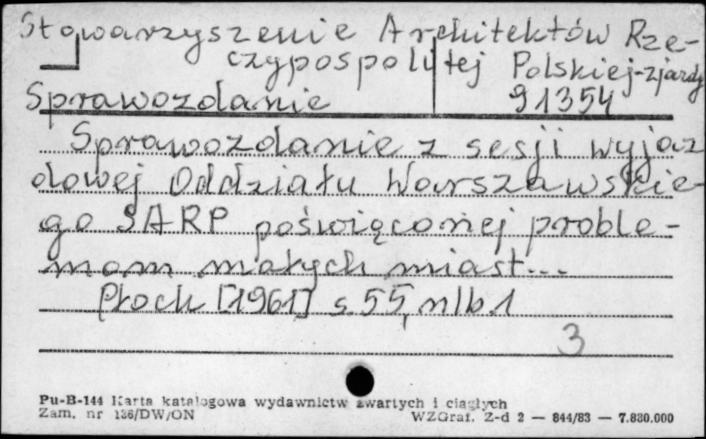 Stowarzyszenie Architektów Rze-
czypospolitej Polskiej-zjazdy
Sprawozdanie 91354
Sprawozdanie z sesji wyjaz
dowej Oddziału Warszawskie-
go SARP poświęconej proble-
mom małych miast...
Płock [1961] s. 55, nlb. 1
3
Pu-B-144 Karta katalogowa wydawnictw zwartych i ciągłych
Zam. nr 136/DW/ON WZGraf. Z-d 2 — 844/83 — 7.830.000